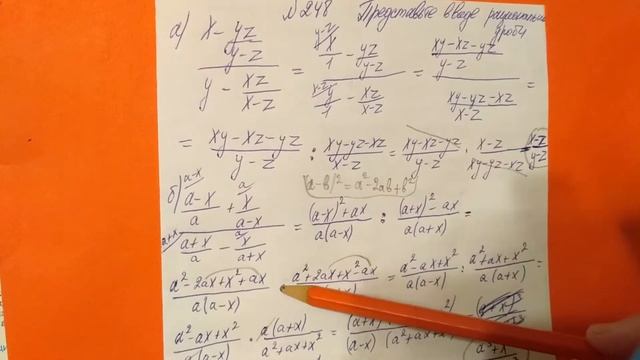 №248 Представьте в виде рациональной дроби
а) (x - yz/(y-z)) / (y - xz/(x-z)) = (x/1 - yz/(y-z)) / (y/1 - xz/(x-z)) = ((xy-xz-yz)/(y-z)) / ((xy-yz-xz)/(x-z)) =
= (xy-xz-yz)/(y-z) : (xy-yz-xz)/(x-z) = (xy-xz-yz)/(y-z) · (x-z)/(xy-yz-xz) (x-z)/(y-z)
(a-b)² = a²-2ab+b²
б) ((a-x)/a + x/(a-x)) / ((a+x)/a - x/(a+x)) = ((a-x)²+ax)/(a(a-x)) : ((a+x)²-ax)/(a(a+x)) =
(a²-2ax+x²+ax)/(a(a-x)) : (a²+2ax+x²-ax) = (a²-ax+x²)/(a(a-x)) : (a²+ax+x²)/(a(a+x)) =
(a²-ax+x²)/(a(a-x)) · a(a+x)/(a²+ax+x²) =